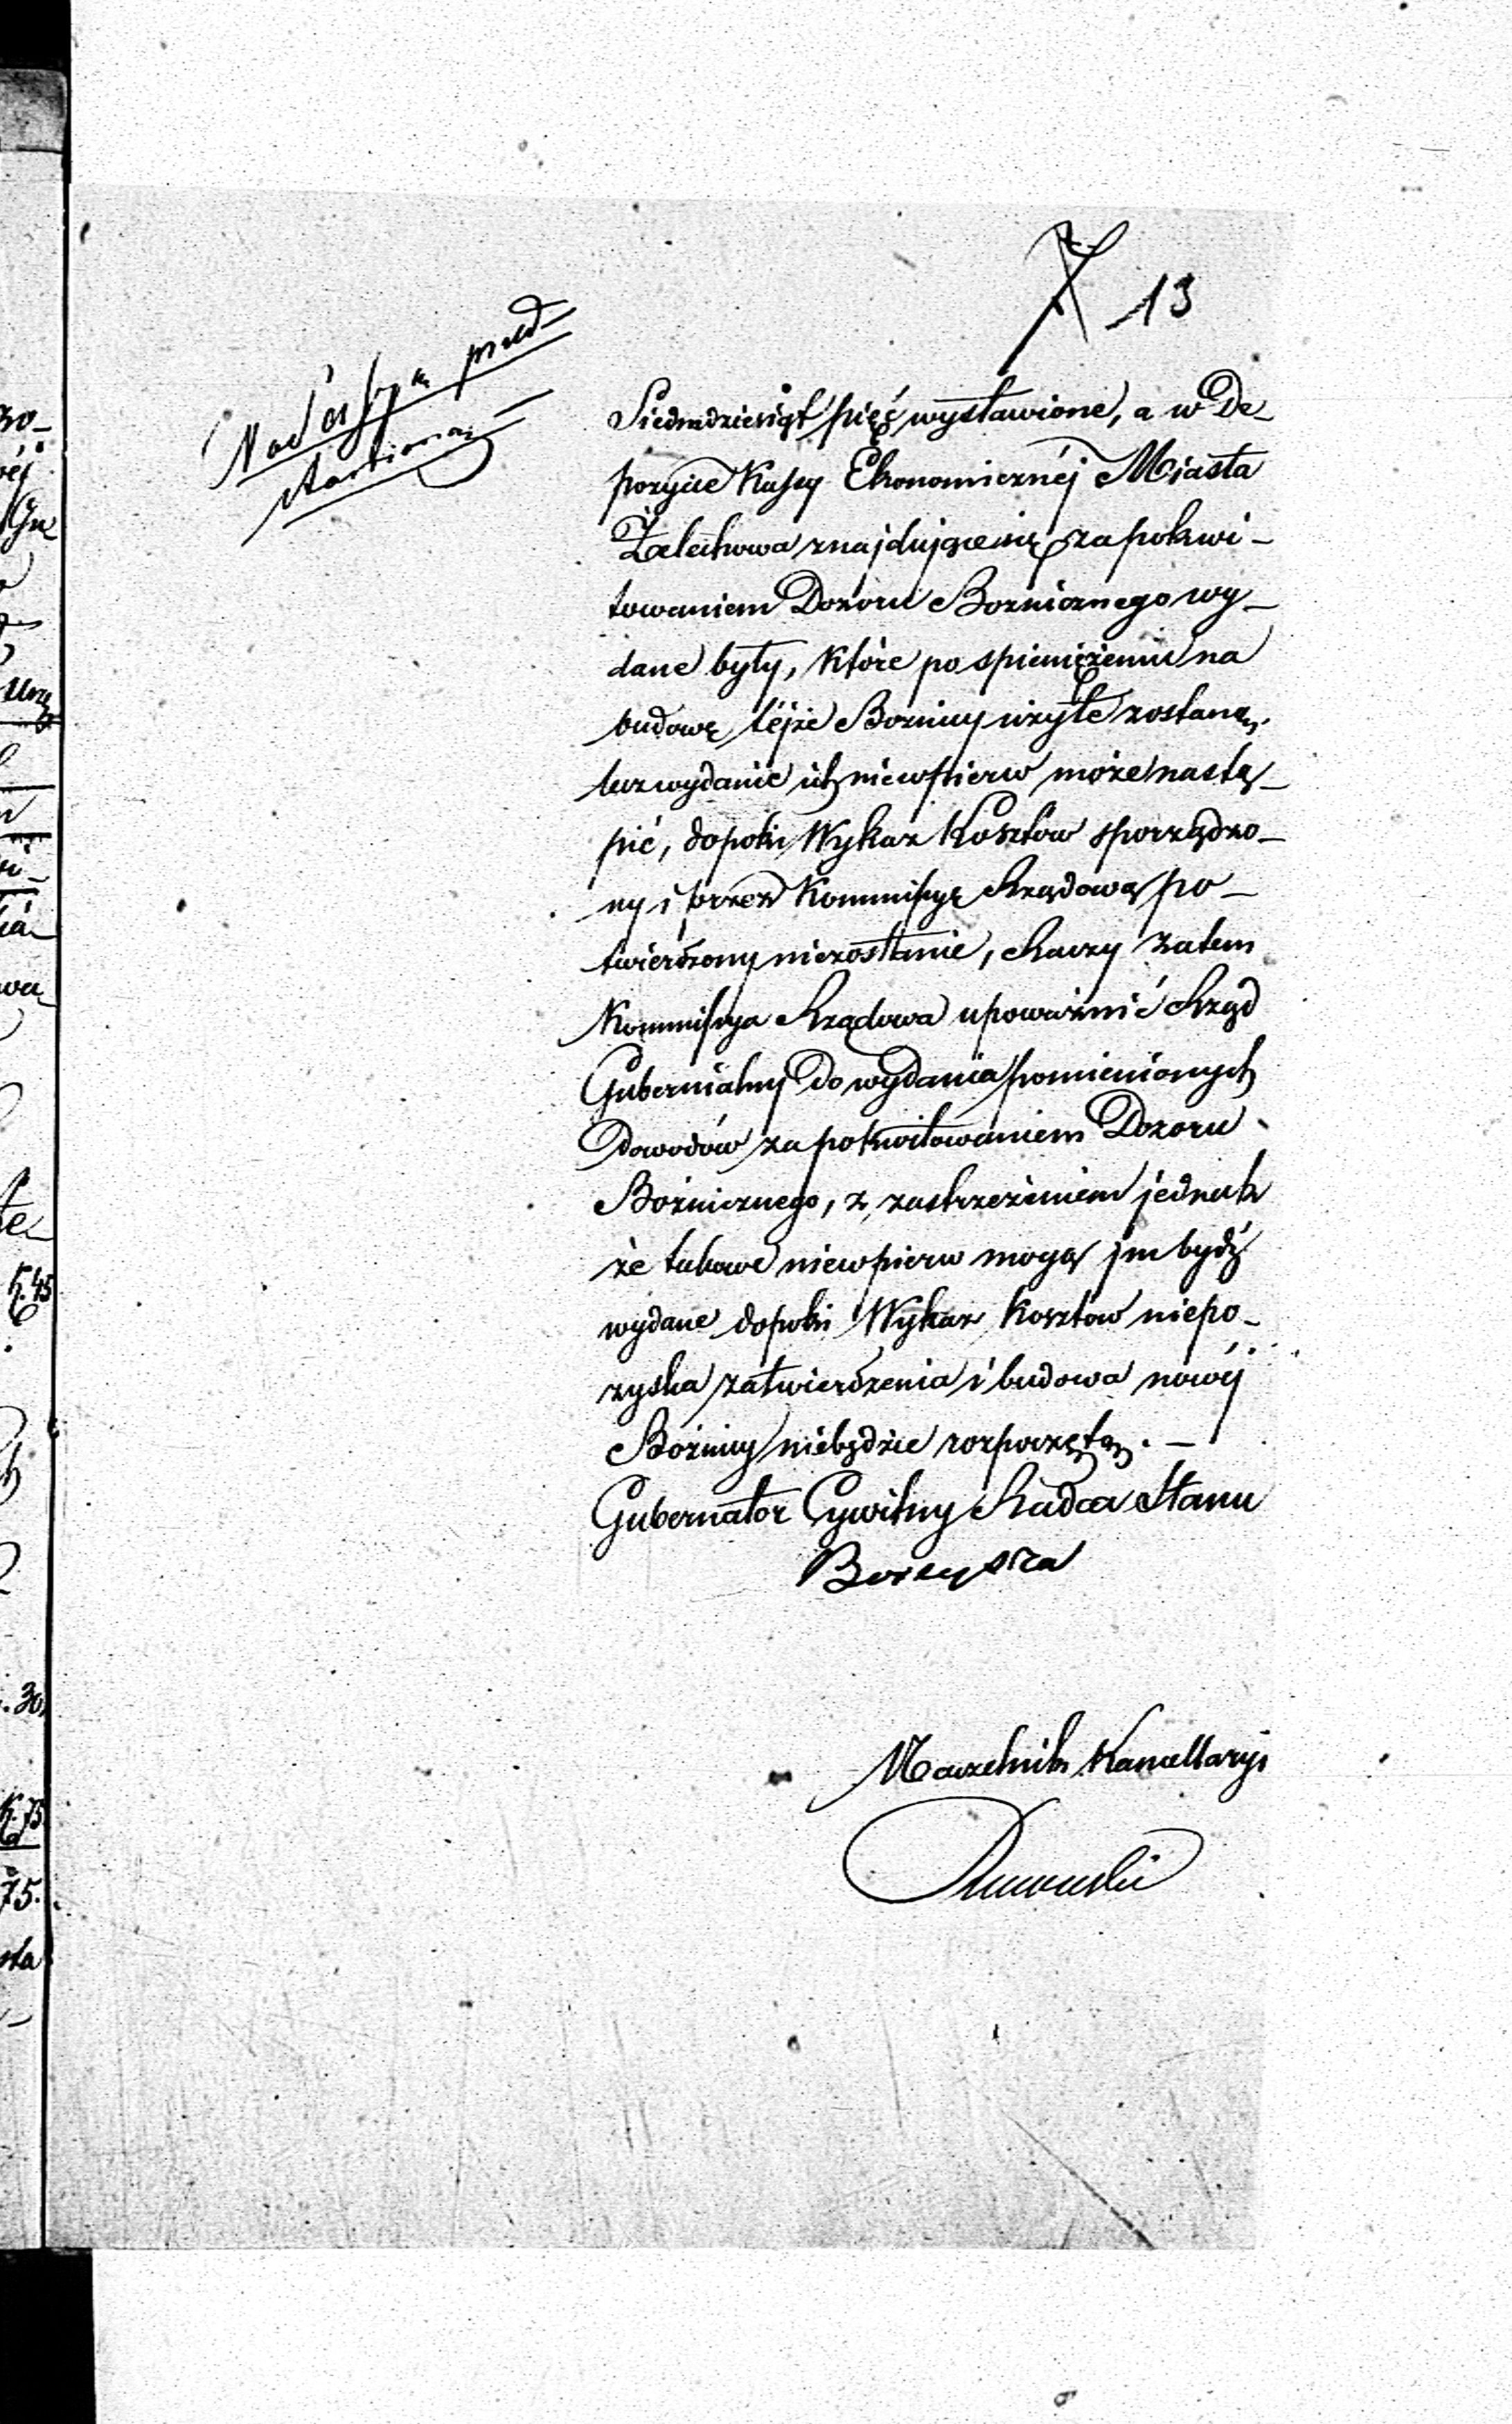 13
Siedmdziesiąt pięć wystawione, a w De-
pozycie Kassy Ekonomicznéj Miasta
Żelechowa znajdujące się za pokwi-
towaniem Dozoru Boznicznego wy-
dane były, które po spieniężeniu na
budowę téjże Boznicy użyte zostaną,
lecz wydanie ich niewpierw może nastą-
pić, dopóki Wykaz Kosztów sporządzo-
ny i przez Kommissyę Rządową po-
twierdzony niezostanie, Raczy zatem
Kommissya Rządowa upoważnić Rząd
Gubernialny do wydania pomienionych
Dowodów za pokwitowaniem Dozoru
Bożnicznego, z zastrzeżeniem jednak
że takowe niewpierw mogą jm bydź
wydane dopóki Wykaz Kosztów niepo-
zyska zatwierdzenia i budowa nowéj
Bożnicy niebędzie rozpoczętą. -
Gubernator Cywilny Radca Stanu
Naczelnik Kancellaryi